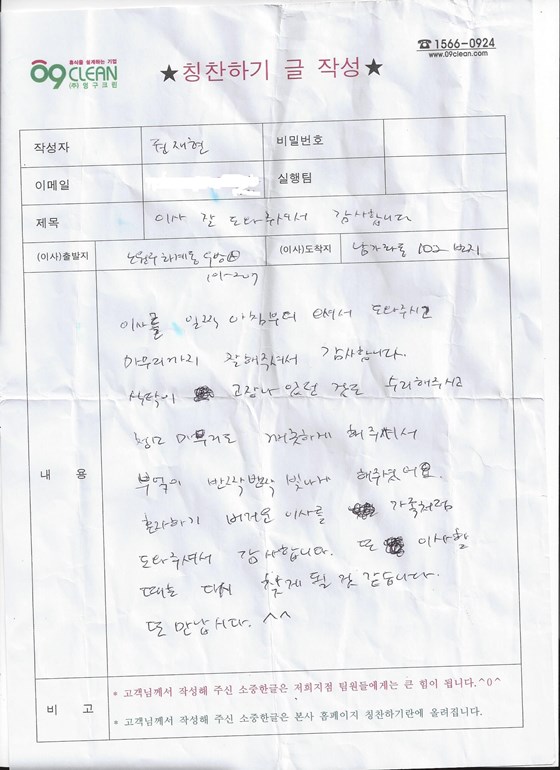 흥사를 설계하는 기업
09CLEAN
(주)영구크린
★칭찬하기 글 작성★
☎ 1566-0924
www.09clean.com
작성자 전재현 비밀번호
이메일 실행팀
제목 이사 잘 도와주셔서 감사합니다
(이사)출발지 노원구 하계동 (이사)도착지 남가좌동 102 번지
101-207
이사를 일찍 아침부터 오셔서 도와주시고
마무리까지 잘해주셔서 감사합니다.
식탁이 고장나 있던 것도 수리해주시고
청소 마무리도 깨끗하게 해주셔서
부엌이 반짝반짝 빛나게 해주셨어요.
혼자하기 버거운 이사를 가족처럼
도와주셔서 감사합니다. 또 이사할
때는 다시 찾게 될 것 같습니다.
또 만납시다. ^^
내 용
비 고
* 고객님께서 작성해 주신 소중한글은 저희지점 팀원들에게는 큰 힘이 됩니다.^0^
* 고객님께서 작성해 주신 소중한글은 본사 홈페이지 칭찬하기란에 올려집니다.